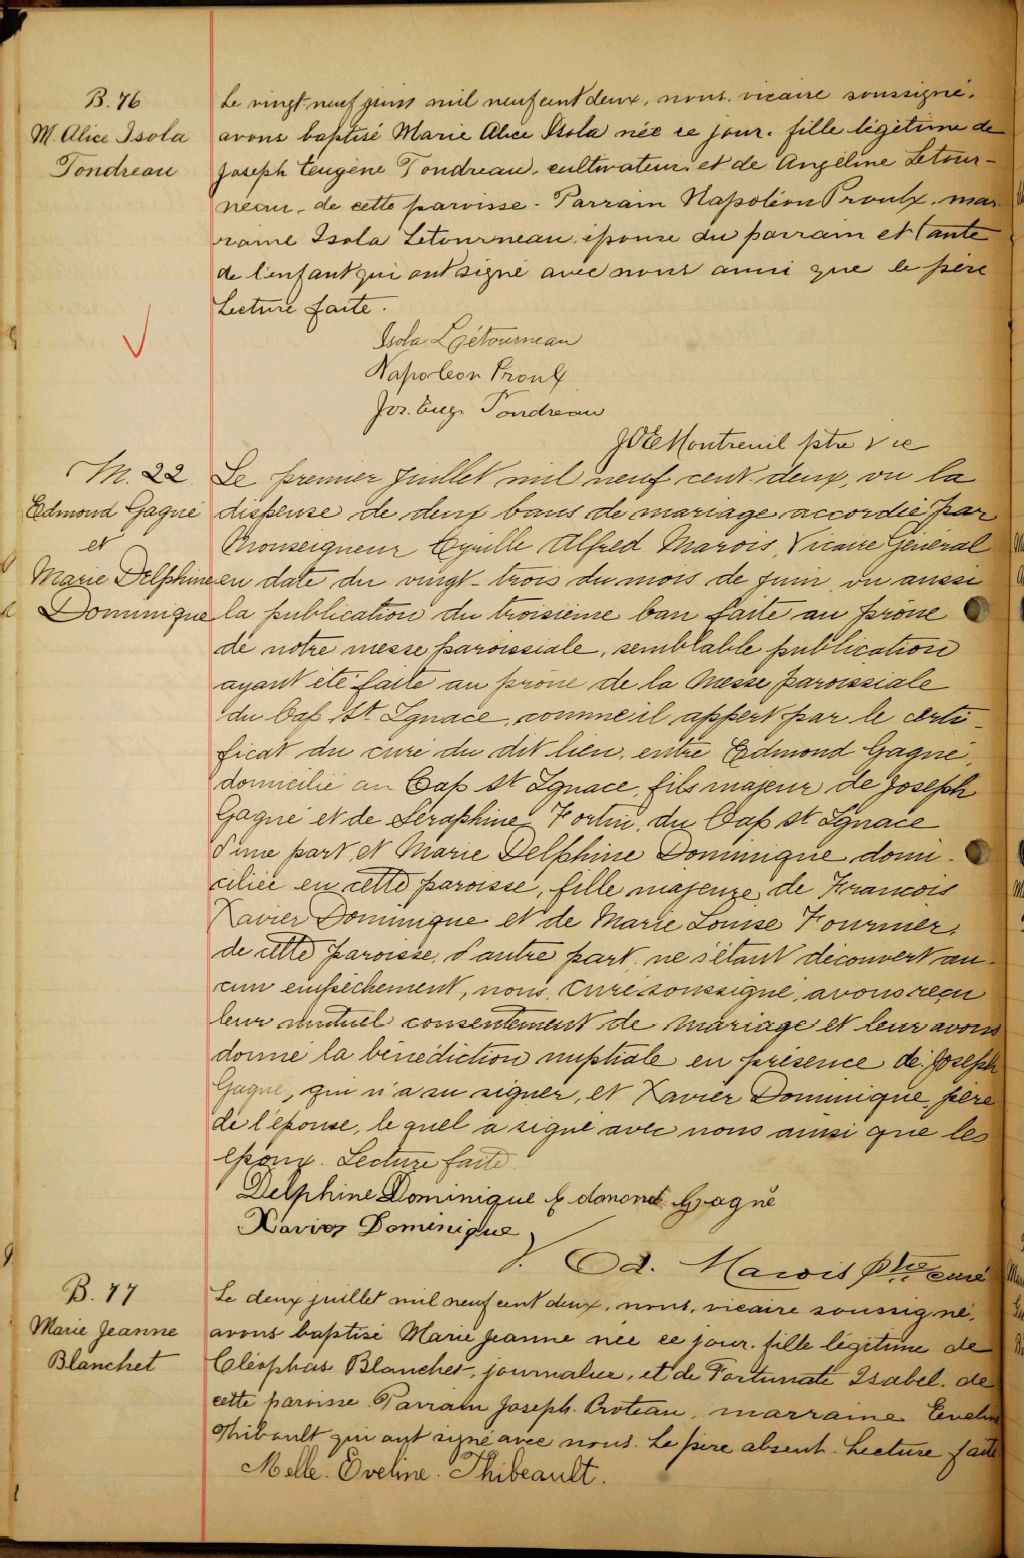 B. 76
M. Alice Isola
Tondreau
Le vingt-neuf juin mil neuf cent deux, nous, vicaire soussigné,
avons baptisé Marie Alice Isola née ce jour, fille légitime de
Joseph Eugène Tondreau, cultivateur, et de Angéline Letour-
neau, de cette paroisse - Parrain Napoléon Proulx, mar-
raine Isola Letourneau, épouse du parrain et tante
de l'enfant qui ont signé avec nous ainsi que le père
Lecture faite.
Isola Létourneau
Napoleon Proulx
Jos. Eug. Tondreau
JOE Montreuil ptre vic
M. 22
Edmond Gagné
et
Marie Delphine
Dominique
Le premier Juillet mil neuf cent deux, vu la
dispense de deux bans de mariage accordée par
Monseigneur Cyrille Alfred Marois, Vicaire Général
en date du vingt-trois du mois de juin, vu aussi
la publication du troisième ban faite au prône
de notre messe paroissiale, semblable publication
ayant été faite au prône de la Messe paroissiale
du Cap St Ignace, comme il appert par le certi-
ficat du curé du dit lieu, entre Edmond Gagné,
domicilié au Cap St Ignace, fils majeur de Joseph
Gagné et de Séraphine Fortin, du Cap St Ignace
d'une part, et Marie Delphine Dominique domi-
ciliée en cette paroisse, fille majeure de Francois
Xavier Dominique et de Marie Louise Fournier,
de cette paroisse, d'autre part, ne s'étant découvert au-
cun empêchement, nous, Curé soussigné, avons reçu
leur mutuel consentement de mariage et leur avons
donné la bénédiction nuptiale en présence de Joseph
Gagné, qui n'a su signer, et Xavier Dominique, père
de l'épouse, lequel a signé avec nous ainsi que les
époux. Lecture faite
Delphine Dominique Edmond Gagné
Xavier Dominique
Od. Marois ptre curé
B. 77
Marie Jeanne
Blanchet
Le deux juillet mil neuf cent deux, nous, vicaire soussigné,
avons baptisé Marie Jeanne née ce jour, fille légitime de
Cléophas Blanchet, journalier, et de Fortunate Isabel, de
cette paroisse. Parrain Joseph Proteau, marraine Eveline
Thibault qui ont signé avec nous. Le père absent. Lecture faite
Melle. Eveline. Thibeault.